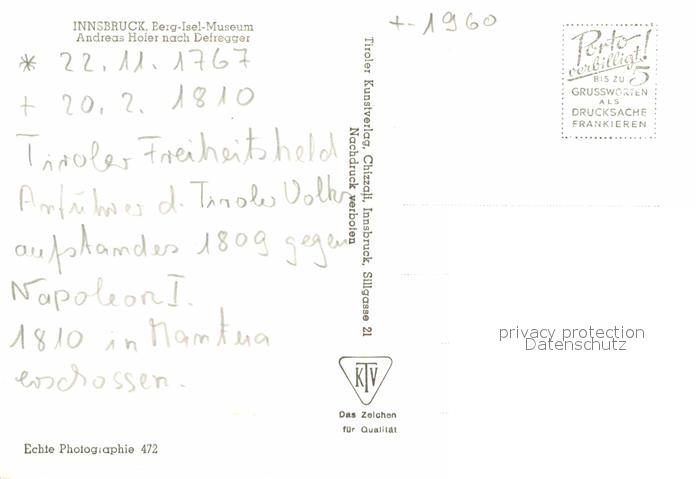 INNSBRUCK. Berg-Isel-Museum
Andreas Hofer nach Defregger
* 22.11.1767
+ 20.2.1810
Tiroler Freiheitsheld
Anführer d. Tiroler Volks
aufstandes 1809 gegen
Napoleon I.
1810 in Mantua
erschossen.
Echte Photographie 472
Tiroler Kunstverlag, Chizzali, Innsbruck, Sillgasse 21
Nachdruck verboten
KTV
Das Zeichen
für Qualität
+- 1960
Porto
verbilligt!
BIS ZU 5
GRUSSWORTEN
ALS
DRUCKSACHE
FRANKIEREN
privacy protection
Datenschutz